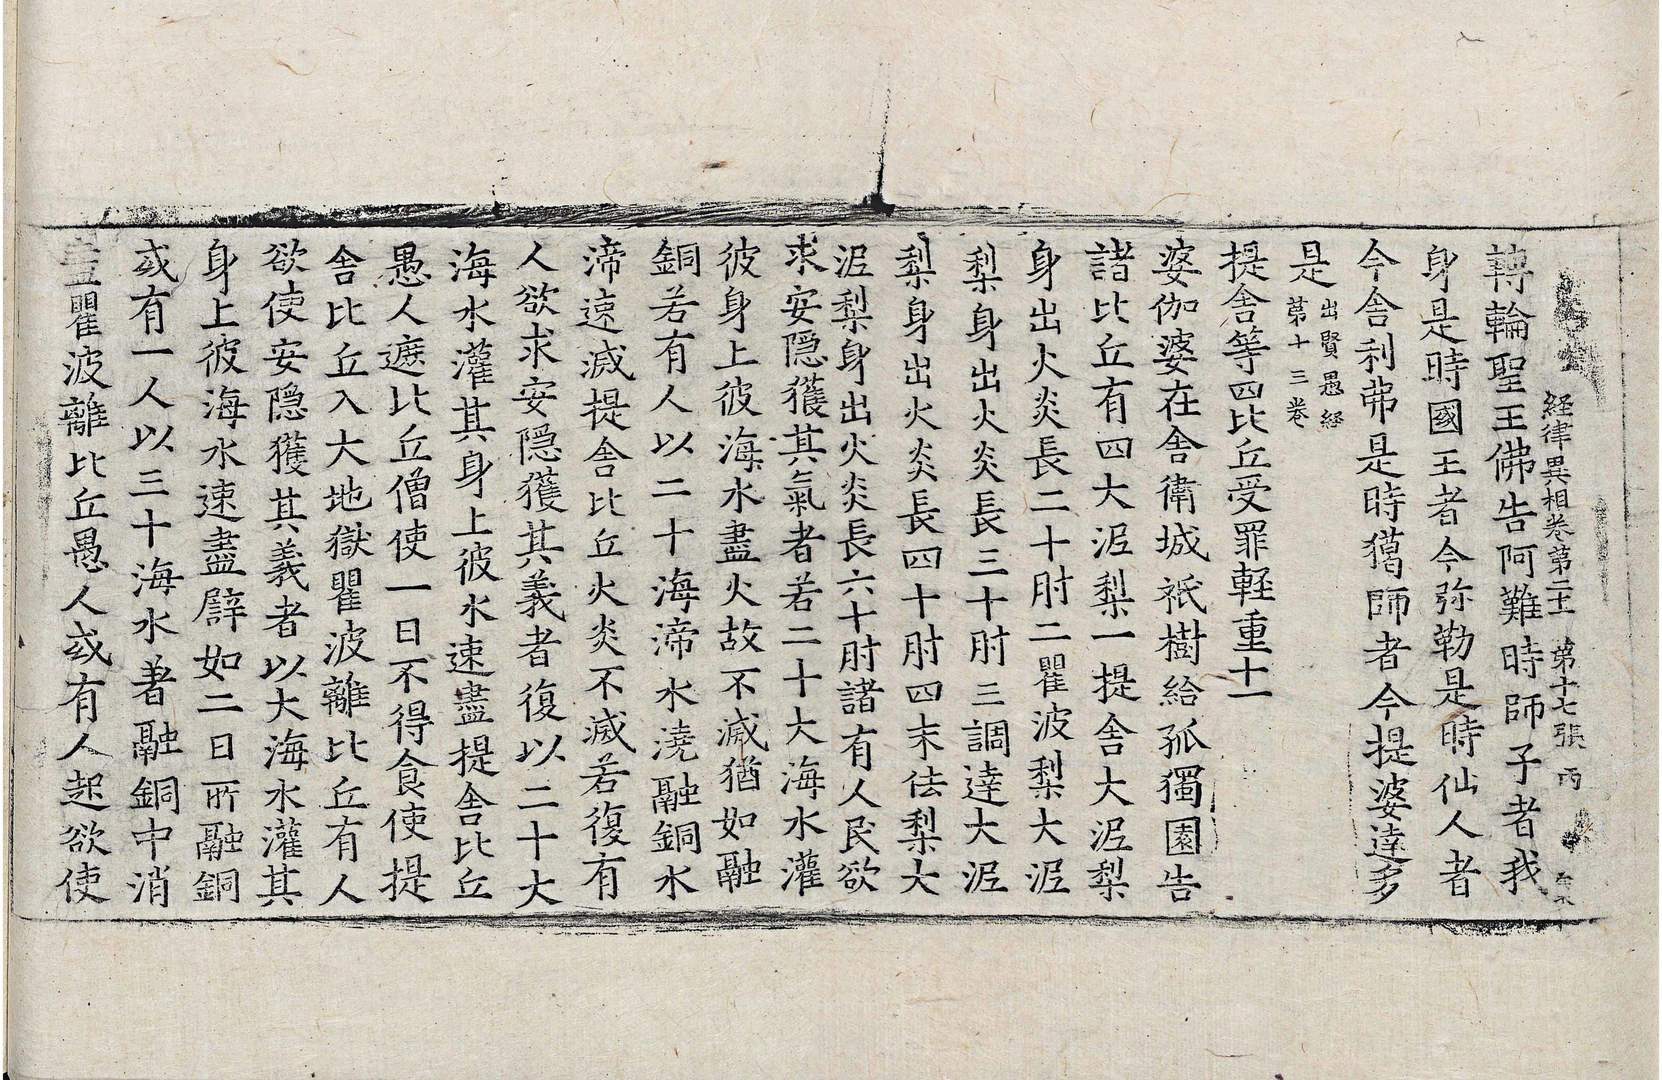 経律異相卷第二十 第十七張 丙
轉輪聖王佛告阿難時師子者我
身是時國王者今弥勒是時仙人者
今舍利弗是時獦師者今提婆達多
是 出賢愚経
第十三卷
提舍等四比丘受罪軽重十一
婆伽婆在舍衛城祇樹給孤獨園告
諸比丘有四大泥梨一提舍大泥梨
身出火炎長二十肘二瞿波梨大泥
梨身出火炎長三十肘三調達大泥
梨身出火炎長四十肘四末佉梨大
泥梨身出火炎長六十肘諸有人民欲
求安隱獲其氣者若二十大海水灌
彼身上彼海水盡火故不滅猶如融
銅若有人以二十海渧水澆融銅水
渧速滅提舍比丘火炎不滅若復有
人欲求安隱獲其義者復以二十大
海水灌其身上彼水速盡提舍比丘
愚人遮比丘僧使一日不得食使提
舍比丘入大地獄瞿波離比丘有人
欲使安隱獲其義者以大海水灌其
身上彼海水速盡譬如二日所融銅
或有一人以三十海水著融銅中消
盡瞿波離比丘愚人或有人起欲使